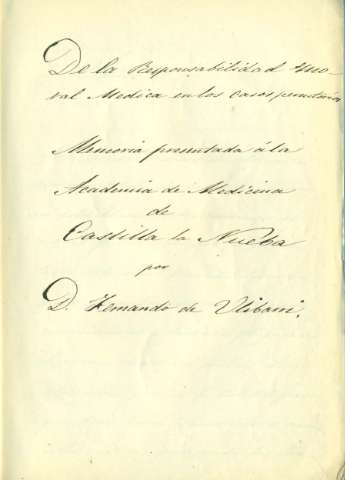 De la Responsabilidad mo-
ral Medica en los casos
Memoria presentada á la
Academia de Medicina
de
Castilla la Nueba
por
D. Fernando de Ulibarri.